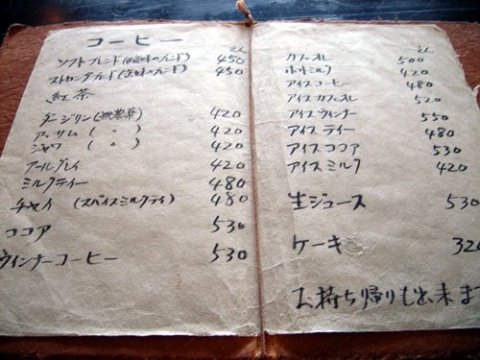 コーヒー
えん
ソフトブレンド(酸味のブレンド) 450
ストロングブレンド(苦味のブレンド) 450
紅茶
ダージリン(無農薬) 420
アッサム( 〃 ) 420
ジャワ( 〃 ) 420
アールグレイ 420
ミルクティー 480
チャイ(スパイスミルクティ) 480
ココア 530
ウインナーコーヒー 530
えん
カフェオレ 500
ホットミルク 420
アイスコーヒ 480
アイスカフェオレ 520
アイスウィンナー 550
アイスティー 480
アイスココア 530
アイスミルク 420
生ジュース 530
ケーキ 320
お持ち帰りも出来ま